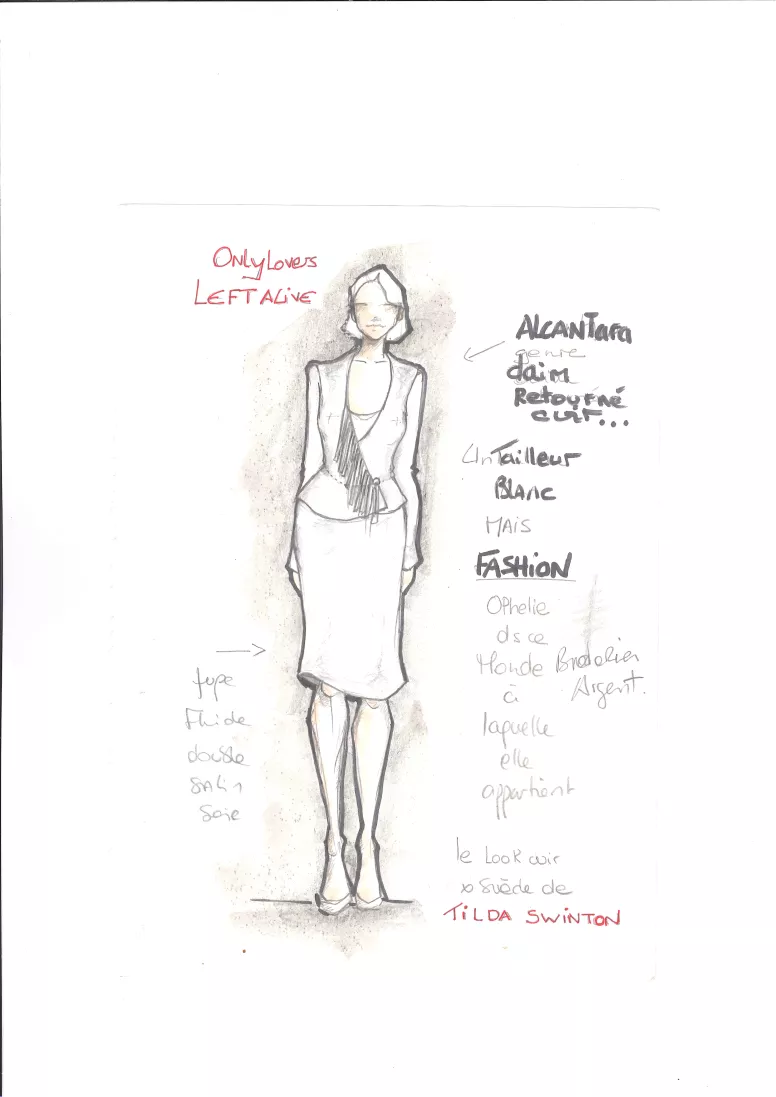 Only Lovers
LEFT ALiVE
ALCANTara
genre
daim
Retourné
cuir...
Un Tailleur
BLANC
MAiS
FASHiON
Ophelie
ds ce
Monde
à
laquelle
elle
appartient
Argent.
jupe
Fluide
double
SAtin
Soie
le Look cuir
Suède de
TiLDA SWiNTON